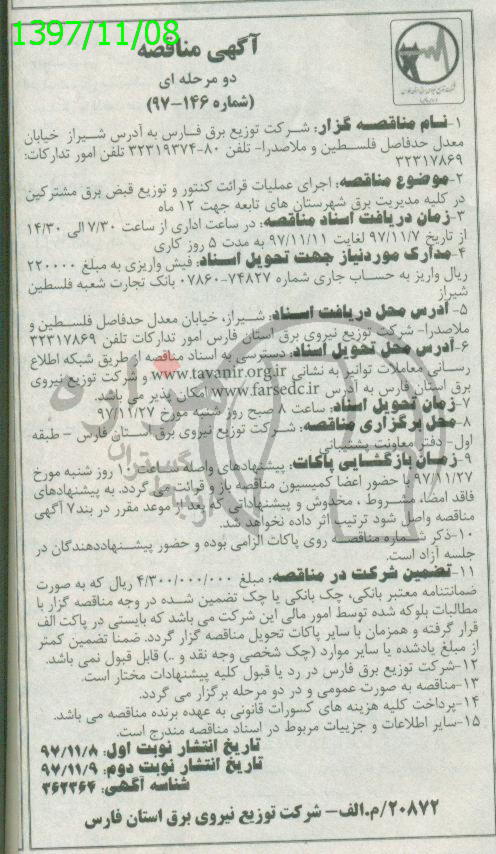 1397/11/08
آگهی مناقصه
دو مرحله ای
(شماره ۱۴۶-۹۷)
۱-نـام مناقصـه گـزار: شـرکت توزیع برق فـارس به آدرس شـیراز خیابان
معدل حدفاصل فلسـطین و ملاصدرا- تلفن ۸۰-۳۲۳۱۹۳۷۴ تلفن امور تدارکات:
۳۲۳۱۷۸۶۹
۲-موضوع مناقصه: اجرای عملیات قرائت کنتور و توزیع قبض برق مشترکین
در کلیه مدیریت برق شهرستان های تابعه جهت ۱۲ ماه
۳-زمان دریافت اسناد مناقصه: در ساعت اداری از ساعت ۷/۳۰ الی ۱۴/۳۰
از تاریخ ۹۷/۱۱/۷ لغایت ۹۷/۱۱/۱۱ به مدت ۵ روز کاری
۴-مدارک موردنیاز جهت تحویل اسـناد: فیش واریزی به مبلغ ۲۲۰۰۰۰
ریال واریز به حسـاب جاری شماره ۷۴۸۲۷-۰۷۸۶۰ بانک تجارت شعبه فلسطین
شیراز
۵- آدرس محل دریافت اسـناد: شـیراز، خیابان معدل حدفاصل فلسـطین و
ملاصدرا- شرکت توزیع نیروی برق استان فارس امور تدارکات تلفن ۳۲۳۱۷۸۶۹
۶-آدرس محل تحویل اسناد: دسترسی به اسناد مناقصه از طریق شبکه اطلاع
رسـانی معاملات توانیر به نشانی www.tavanir.org.ir و شرکت توزیع نیروی
برق استان فارس به آدرس www.farsedc.ir امکان پذیر می باشد.
۷-زمان تحویل اسناد: ساعت ۸ صبح روز شنبه مورخ ۹۷/۱۱/۲۷
۸-محل برگزاری مناقصه: شـرکت توزیع نیروی برق اسـتان فارس - طبقه
اول- دفتر معاونت پشتیبانی
۹-زمـان بازگشـایی پاکات: پیشنهادهای واصله ساعت ۱۰ روز شنبه مورخ
۹۷/۱۱/۲۷ با حضور اعضا کمیسیون مناقصه باز و قرائت می گردد. به پیشنهادهای
فاقد امضا، مشـروط، مخدوش و پیشنهاداتی که بعد از موعد مقرر در بند۷ آگهی
مناقصه واصل شود ترتیب اثر داده نخواهد شد.
۱۰-ذکر شـماره مناقصـه روی پاکات الزامی بوده و حضور پیشـنهاددهندگان در
جلسه آزاد است.
۱۱-تضمین شرکت در مناقصه: مبلغ ۴/۳۰۰/۰۰۰/۰۰۰ ریال که به صورت
ضمانتنامه معتبر بانکی، چک بانکی یا چک تضمین شـده در وجه مناقصه گزار یا
مطالبات بلوکه شده توسط امور مالی این شرکت می باشد که بایستی در پاکت الف
قرار گرفته و همزمان با سایر پاکات تحویل مناقصه گزار گردد. ضمنا تضمین کمتر
از مبلغ یادشده یا سایر موارد (چک شخصی وجه نقد و ..) قابل قبول نمی باشد.
۱۲-شرکت توزیع برق فارس در رد یا قبول کلیه پیشنهادات مختار است.
۱۳-مناقصه به صورت عمومی و در دو مرحله برگزار می گردد.
۱۴-پرداخت کلیه هزینه های کسورات قانونی به عهده برنده مناقصه می باشد.
۱۵-سایر اطلاعات و جزییات مربوط در اسناد مناقصه مندرج است.
تاریخ انتشار نوبت اول: ۹۷/۱۱/۸
تاریخ انتشار نوبت دوم: ۹۷/۱۱/۹
شناسه آگهی: ۳۶۲۳۶۴
۲۰۸۷۲/م.الف- شرکت توزیع نیروی برق استان فارس